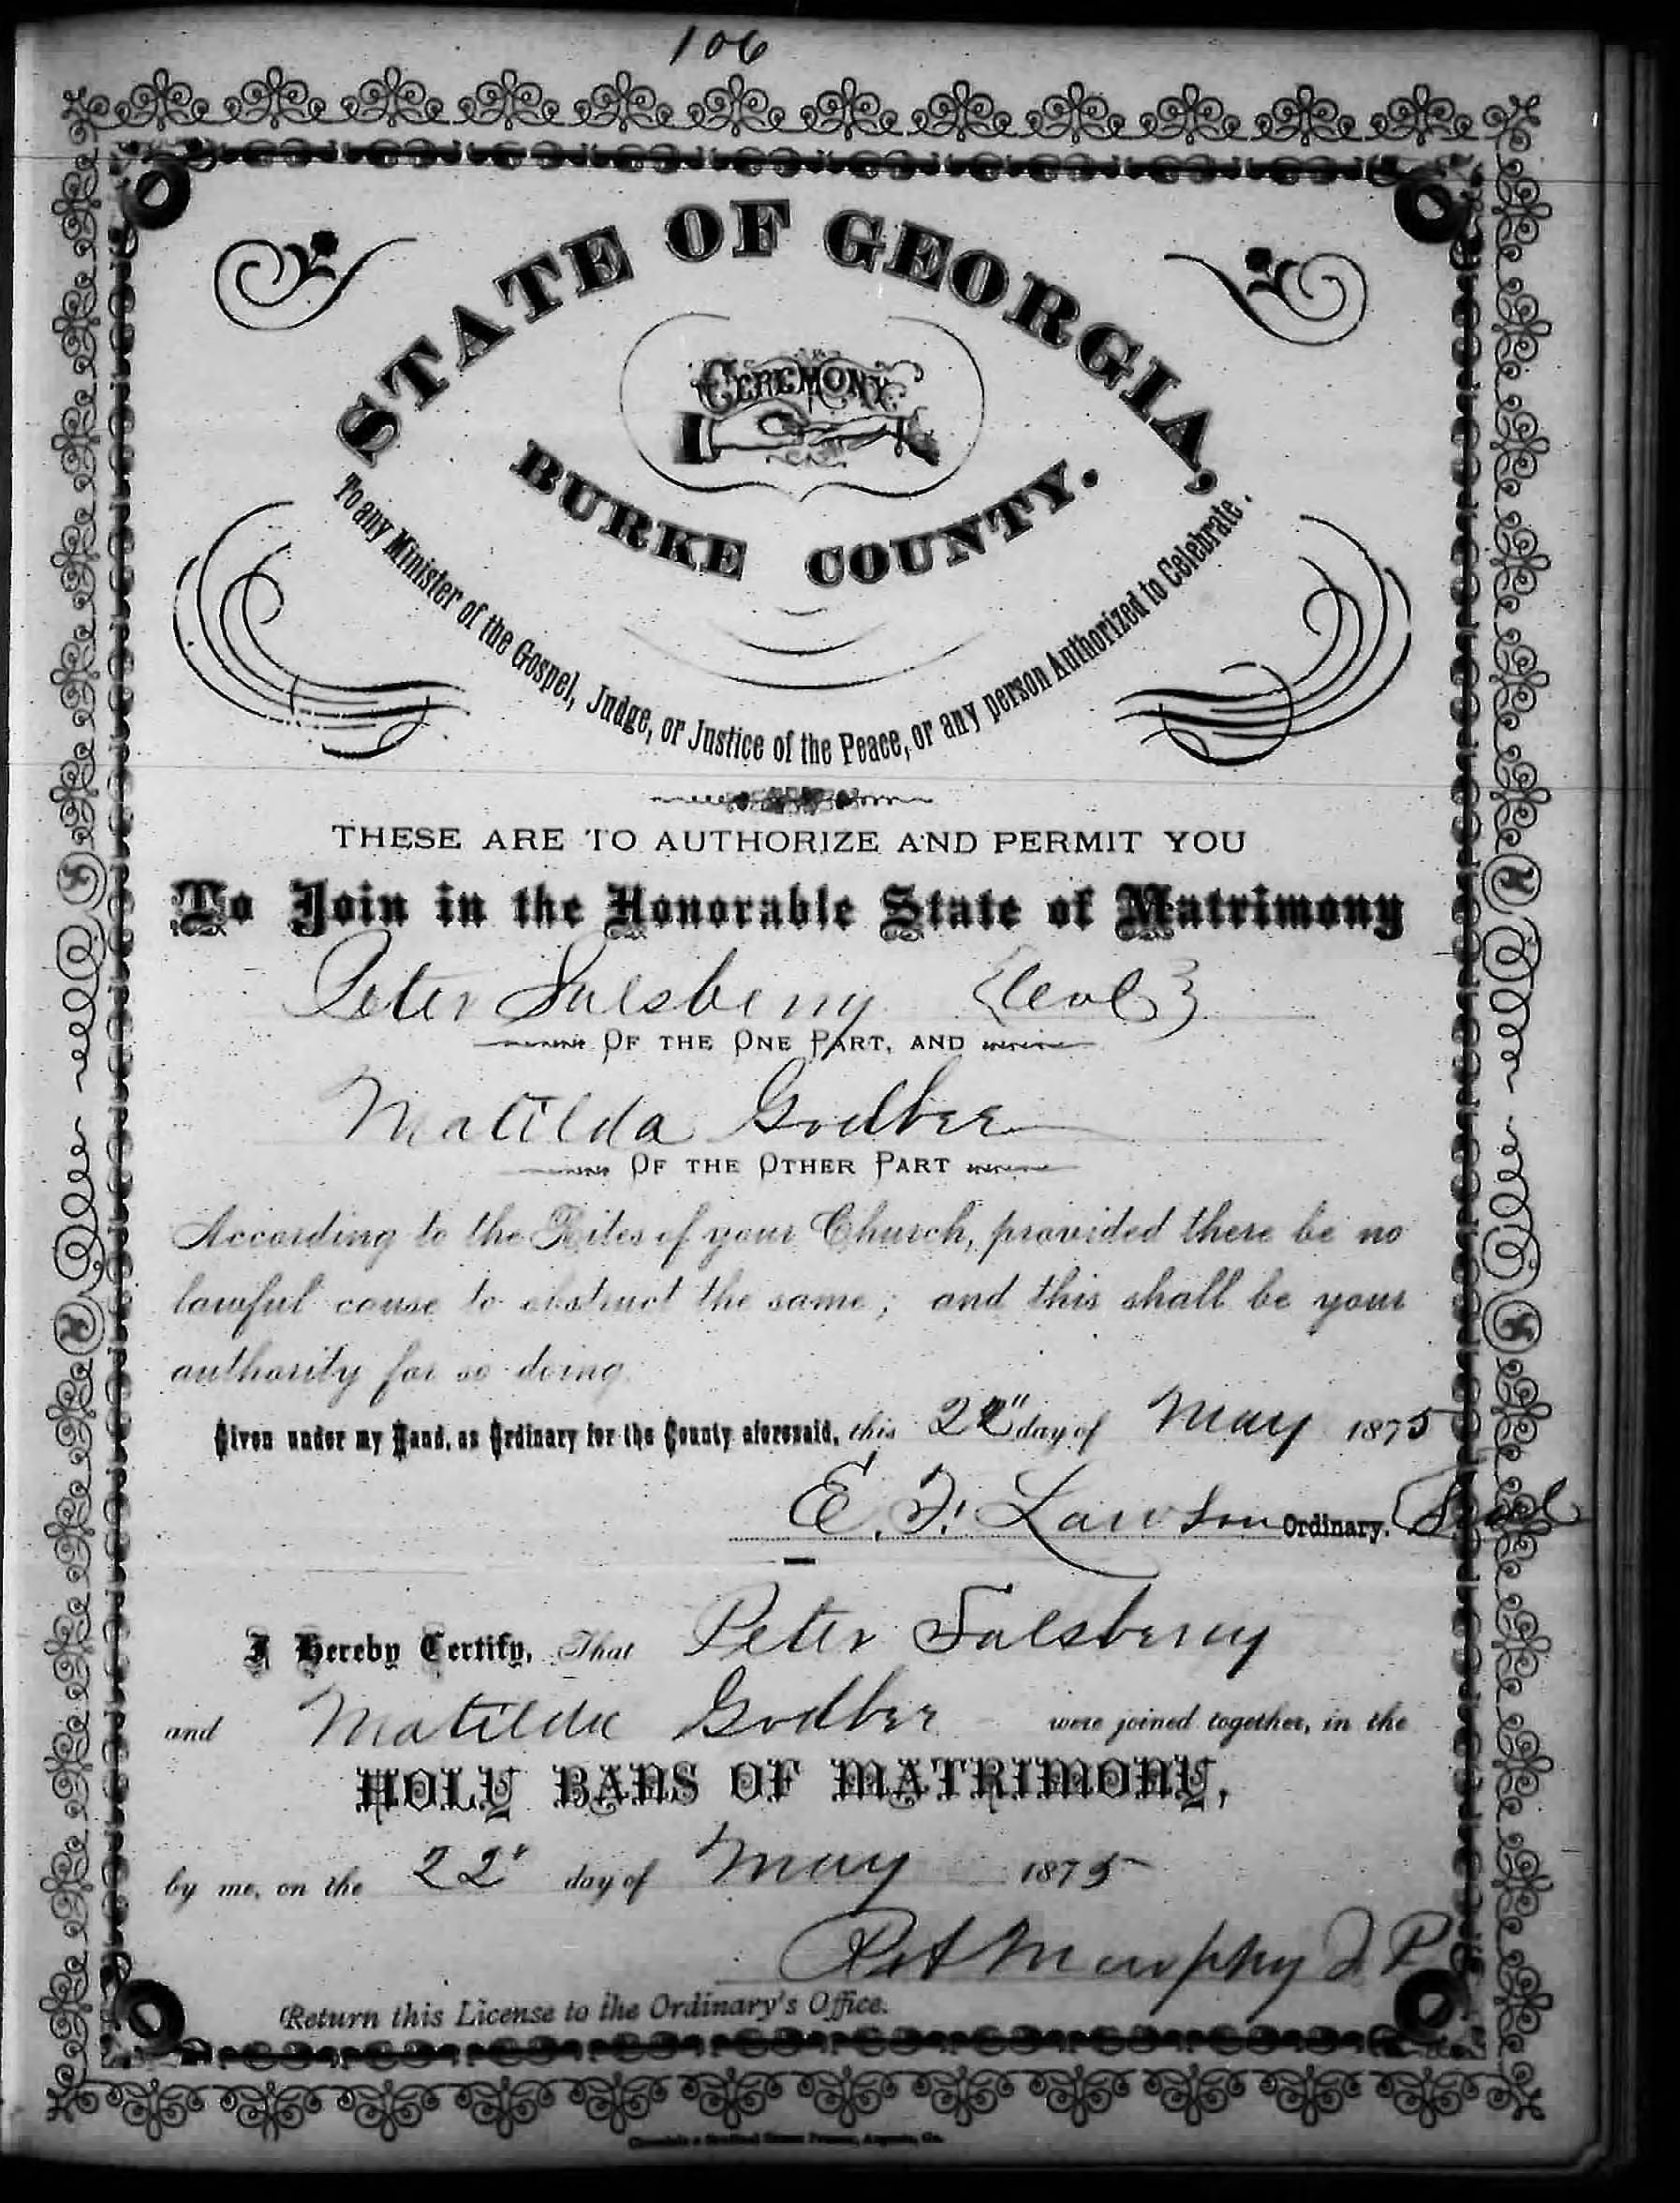 106
STATE OF GEORGIA,
CEREMONY.
BURKE COUNTY.
To any Minister of the Gospel, Judge, or Justice of the Peace, or any person Authorized to Celebrate.
THESE ARE TO AUTHORIZE AND PERMIT YOU
To Join in the Honorable State of Matrimony
Peter Salsberry {Col}
OF THE ONE PART, AND
Matilda Godbee
OF THE OTHER PART
According to the Rites of your Church, provided there be no
lawful cause to obstruct the same; and this shall be your
authority for so doing.
Given under my Hand, as Ordinary for the County aforesaid, this 22" day of May 1875
E. F. Lawson Ordinary. Seal
I Hereby Certify, That Peter Salsberry
and Matilda Godbee were joined together, in the
HOLY BANS OF MATRIMONY,
by me, on the 22" day of May 1875
Murphy J P
Return this License to the Ordinary's Office.